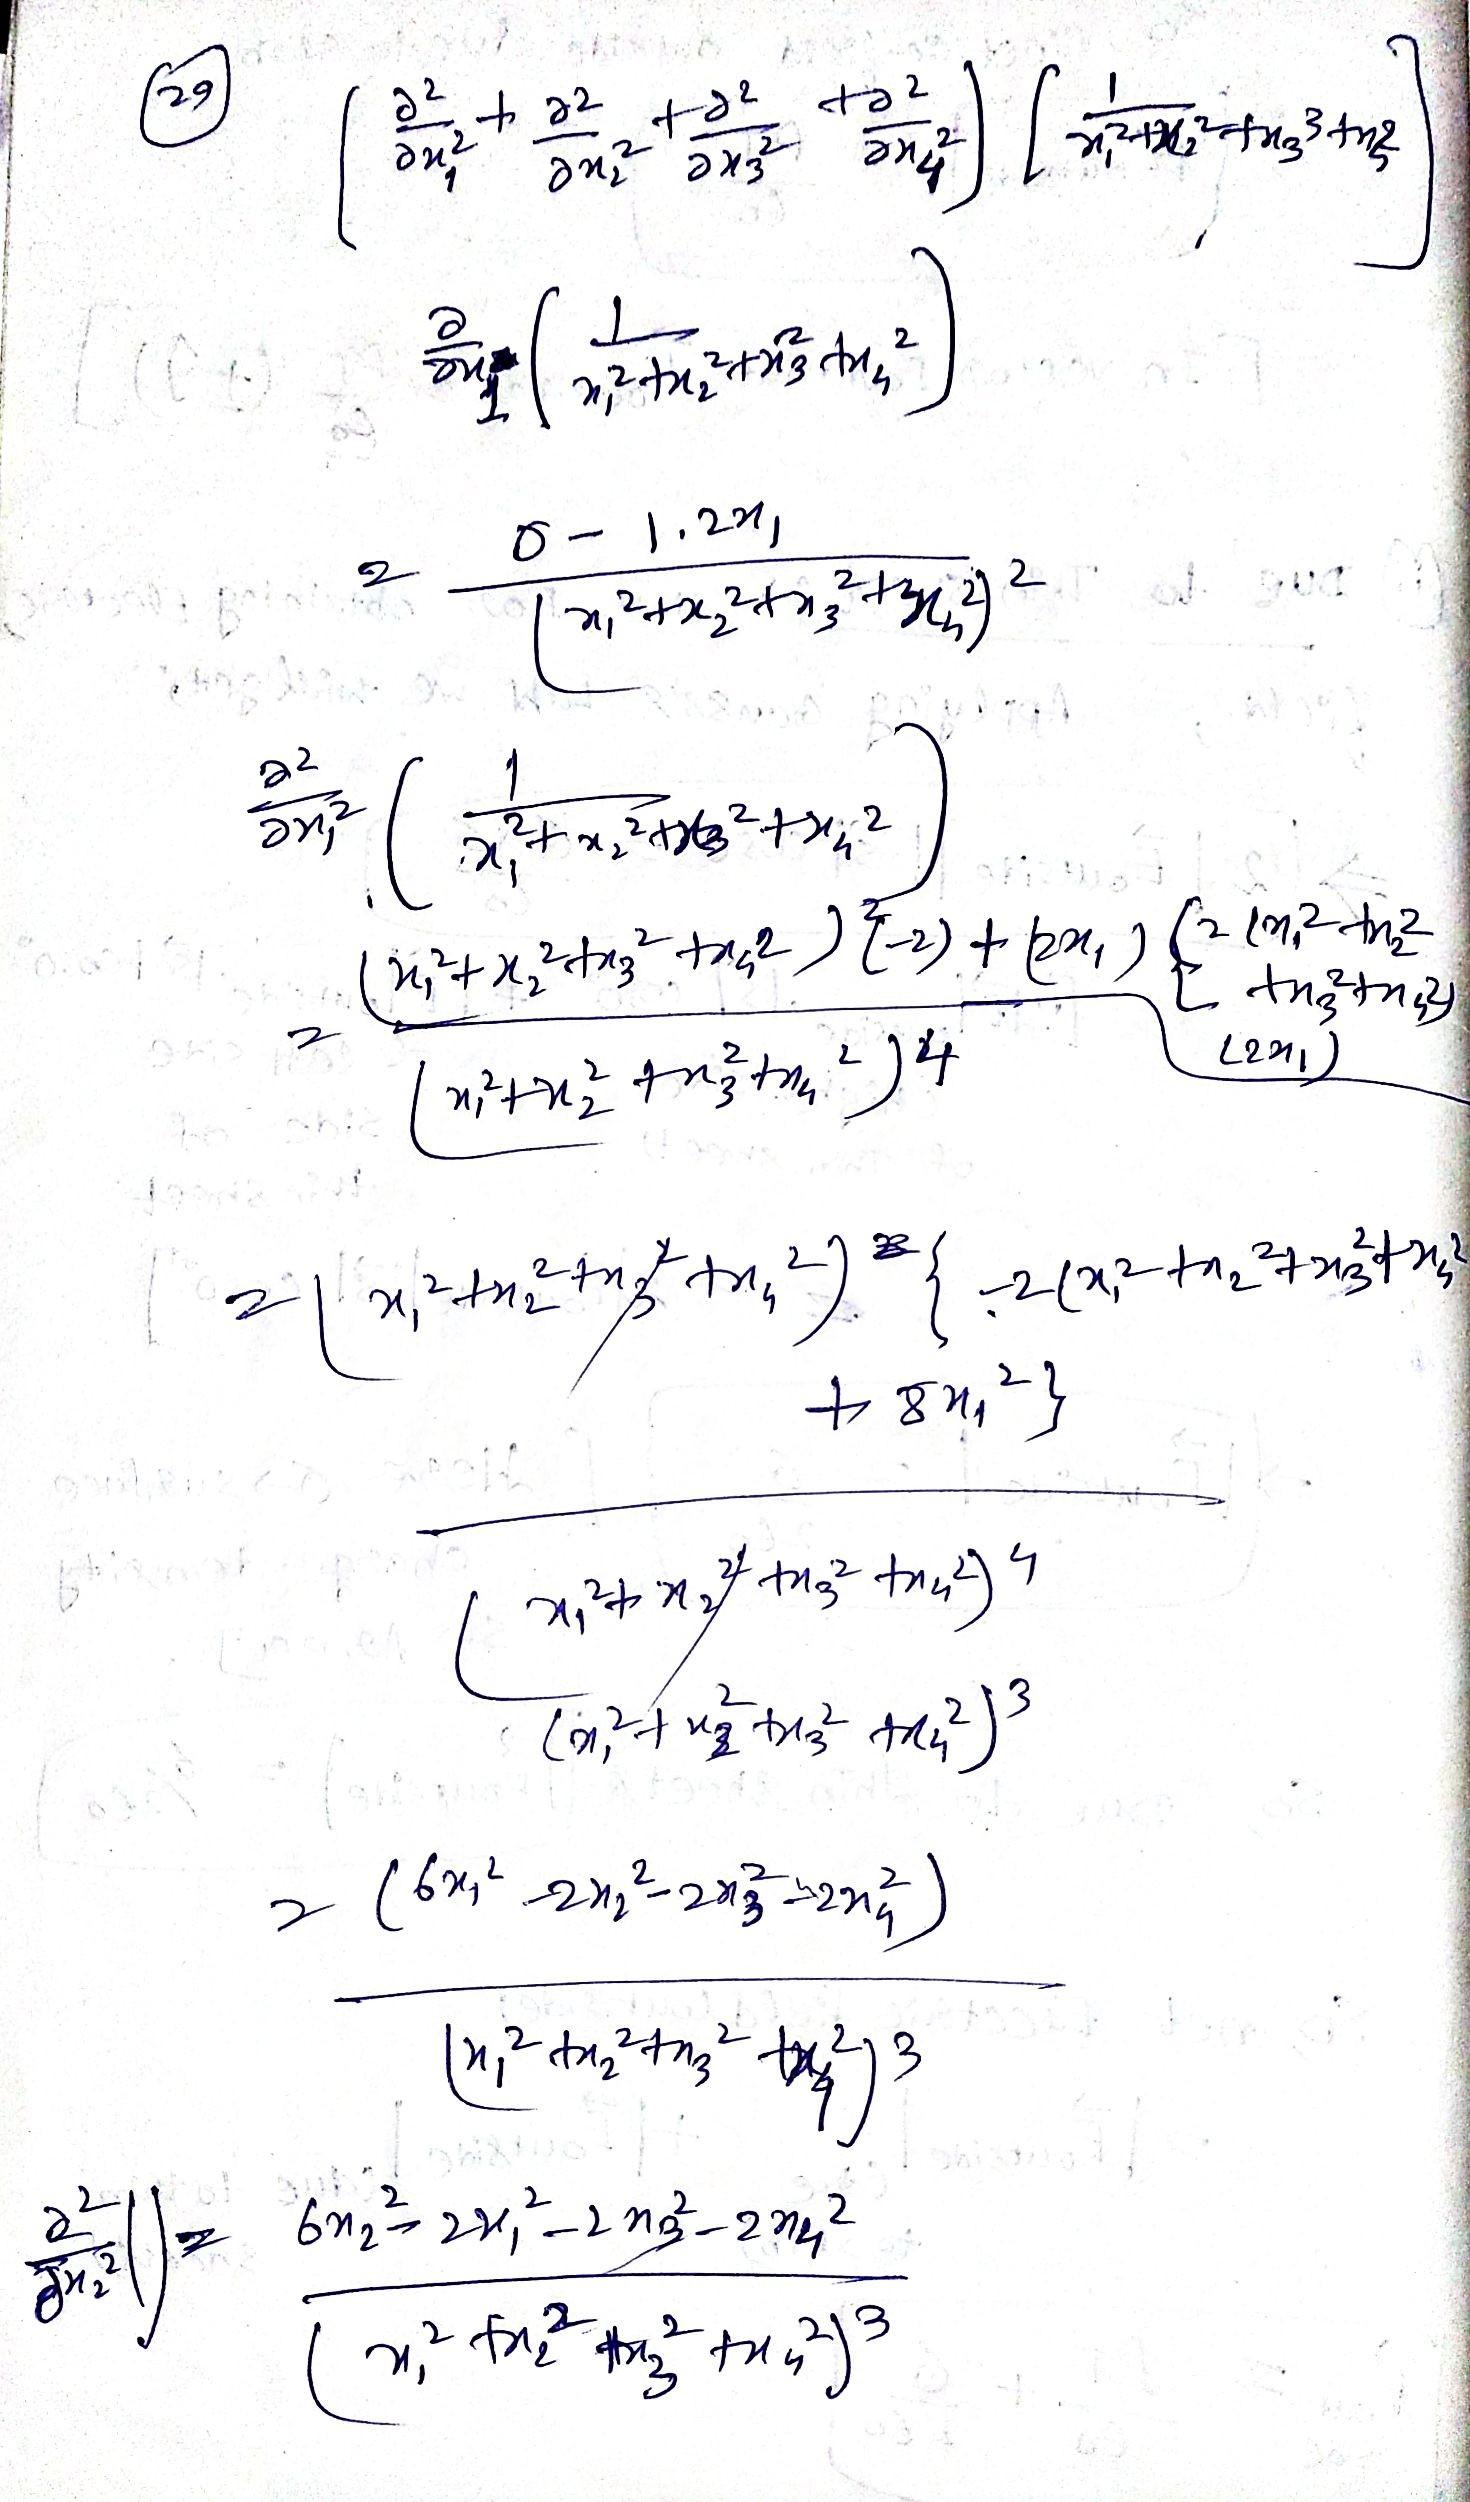 (29) ( ∂²/∂x₁² + ∂²/∂x₂² + ∂²/∂x₃² + ∂²/∂x₄² ) [ 1/(x₁²+x₂²+x₃³+x₄²) ]
∂/∂x₁ ( 1/(x₁²+x₂²+x₃²+x₄²) )
= (0 - 1.2x₁)/(x₁²+x₂²+x₃²+x₄²)²
∂²/∂x₁² ( 1/(x₁²+x₂²+x₃²+x₄²) )
= (x₁²+x₂²+x₃²+x₄²)²(-2) + (2x₁) {2(x₁²+x₂²
+x₃²+x₄²)
(2x₁)
(x₁²+x₂²+x₃²+x₄²)⁴
= (x₁²+x₂²+x₃²+x₄²) { -2(x₁²+x₂²+x₃²+x₄²
+ 8x₁²}
(x₁²+x₂²+x₃²+x₄²)⁴
(x₁²+x₂²+x₃²+x₄²)³
= (6x₁² - 2x₂² - 2x₃² - 2x₄²)
(x₁²+x₂²+x₃²+x₄²)³
∂²/∂x₂² ( ) = (6x₂² - 2x₁² - 2x₃² - 2x₄²)
(x₁²+x₂²+x₃²+x₄²)³